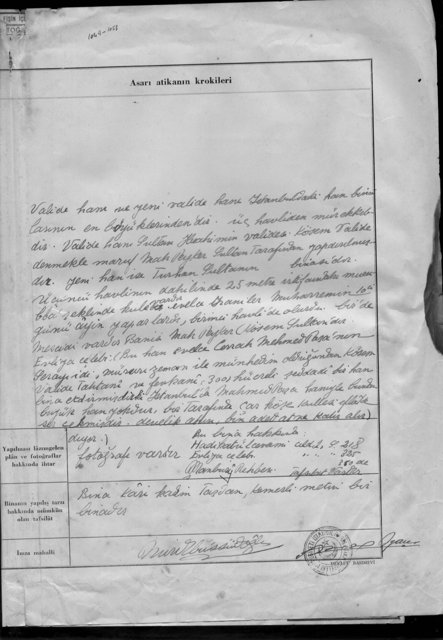 1049-1053
Asarı atikanın krokileri
Valide hanı ve yeni valide hanı Istanbuldaki han bina
larının en büyüklerindendir. üç havliden mürekkeb
dir. Valide hanı Sultan Ibrahimin validesi Kösem Valide
denmekle maruf Mah Peyker Sultan tarafından yapdırılmış
dır. yeni han ise Turhan Sultanın binasıdır.
Üçüncü havlinin dahilinde 25 metre irtifaında
şeklinde kule vardır evelce Iraniler Muharremin 10 uncu
günü âyin yaparlardı, birinci havlide olurdu. bir de
Mescidi vardır Banisi Mah Peyker Kösem Sultandır
Evliya çelebi: (Bu han evelce Cerrah Mehmed Paşa'nın
Sarayı idi, mürur zaman ile münhedim olduğundan Kösem
Valide Tahtani ve fevkani, 300 hücreli bir han
bina etdirmişdir ki Istanbulda Mahmud Paşa hanıyle bundan
büyük han yokdur, bir tarafında çar köşe kullesi eflâke
ser çekmişdir. develik ahırı, bin aded at ve katır alır)
diyor.)
Yapılması lâzımgelen
plân ve fotoğraflar
hakkında ihtar
fotoğrafı vardır
Bu bina hakkında:
Hadikatül cevami cild 1, S. 218
Evliya celebi
Istanbul Rehberi
Binanın yapılış tarzı
hakkında mümkün
olan tafsilât
Bina tarzı kadim Taşdan, kemerli metin bir
binadır
İmza mahalli
DEVLET BASIMEVİ